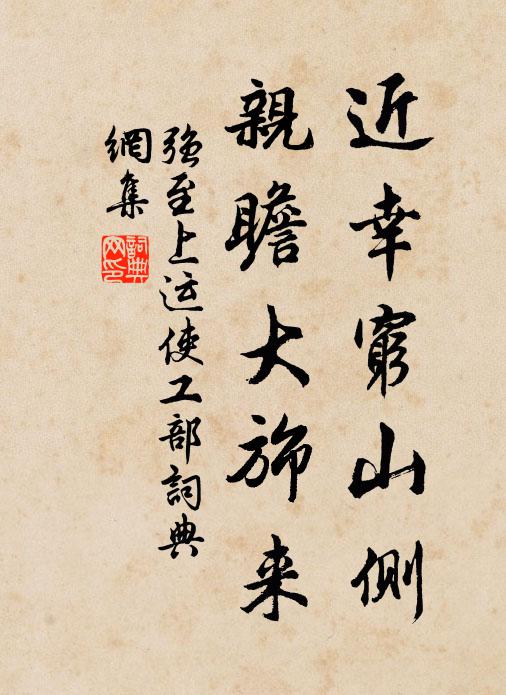 近幸窮山側
親瞻大斾来
強至上运使工部詞典
網集
詞典
网印